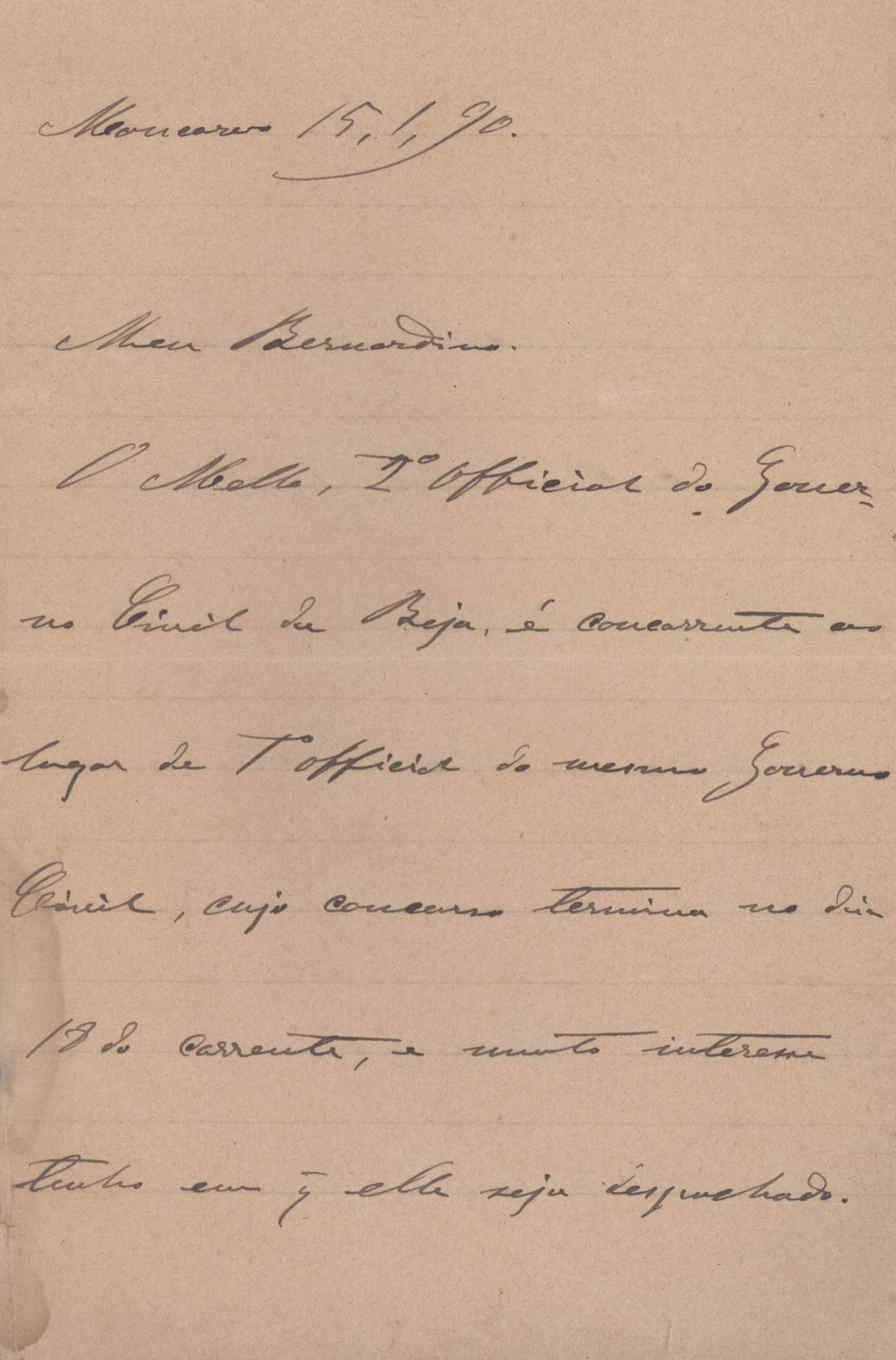 Moncorvo 15, 1, 90.
Meu Bernardino.
O Mello, 2º Official do Gover-
no Civil de Beja, é concorrente ao
lugar de 1º official do mesmo Governo
Civil, cujo concurso termina no dia
18 do corrente, e muito interesse
tenho em q̃ elle seja despachado.